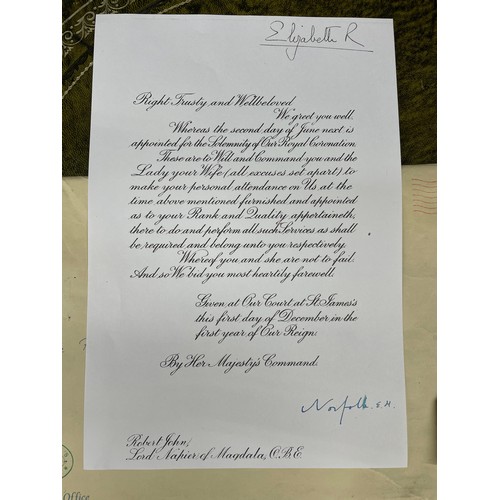 Elizabeth R
Right Trusty, and Wellbeloved
We greet you well.
Whereas the second day of June next is
appointed for the Solemnity of Our Royal Coronation
These are to Will and Command you and the
Lady your Wife (all excuses set apart) to
make your personal attendance on Us at the
time above mentioned furnished and appointed
as to your Rank and Quality appertaineth,
there to do and perform all such Services as shall
be required and belong unto you respectively.
Whereof you and she are not to fail.
And so We bid you most heartily farewell.
Given at Our Court at St. James's
this first day of December in the
first year of Our Reign.
By Her Majesty's Command.
Norfolk. E.M.
Robert John,
Lord Napier of Magdala, O.B.E
Office